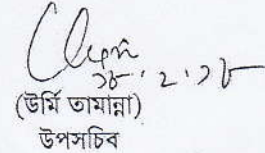 ১৮.২.১৮
(উর্মি তামান্না)
উপসচিব